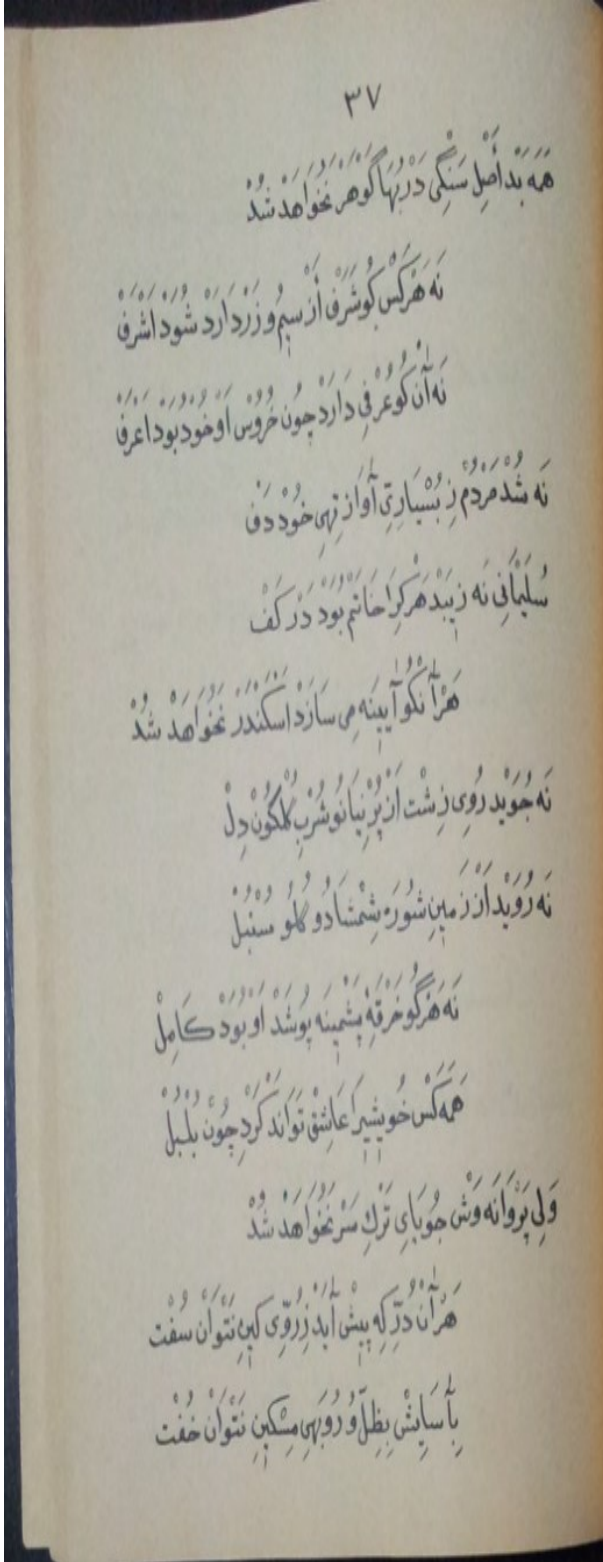 ۳۷
هَمَه بَدْ أَصْلِ سَنْگِی دَرْ بَهَا گَوْهَرْ نَخَوٰاهَدْ شُدْ
نَه هَرْکَسْ کُو شَرَفْ أَزْ سِیمُ و زَرْ دَارَدْ شَوَدْ اَشْرَفْ
نَه آنْ کُو عُرْفِی دَارَدْ چُونْ خُرُوسْ اَوْ خُودْ بُوَدْ اَعْرَفْ
نَه شُدْ مَرْدُمْ زِ بِسْیَارِیِّ آوَازِ تَهِیِ خُودْ دَفْ
سُلَیْمَانِی نَه زِیبَدْ هَرْکِرَا خَاتَمْ بُوَدْ دَرْ کَفْ
هَرْ آنکُو آیِینَه مِی سَازَدْ اَسْکَنْدَرْ نَخَوٰاهَدْ شُدْ
نَه جُویَدْ رُویِ زِشْت اَزْ پَرْنِیَانُو شَرْبِ گُلْگُونْ دِلْ
نَه رُویَدْ اَزْ زَمِینِ شُورَه شِمْشَادُو گُلُو سُنْبُلْ
نَه هَرْ کُو خِرْقَهْ پَشْمِینَه پُوشَدْ اَوْ بُوَدْ کَامِلْ
هَمَه کَسْ خُویشِیرَا عَاشِقْ تَوَانَدْ کَرْدْ چُونْ بُلْبُلْ
وَلِی پَرْوَانَه وَشْ جُویَایِ تَرْکِ سَرْ نَخَوٰاهَدْ شُدْ
هَرْ آنْ دُرِّ کِه پِیشْ آیَدْ زِ رُویِّ کِینِ نَتْوَانْ سُفْت
بِآسَایِشْ بِظِلِّ وُ رُوبَهِیِ مِسْکِینِ نَتْوَانْ خُفْت